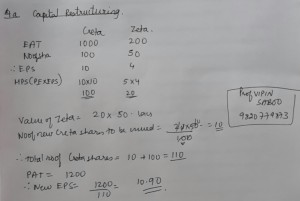 Capital Restructuring.
Creta Zeta
EAT 1000 200
Noofsha 100 50
∴ EPS 10 4
MPS (PEXEPS) 10x10 5x4
100 20
Value of Zeta = 20 x 50
No of new Creta shares to be issued = = 10
100
∴ Total no of Creta shares = 10 + 100 = 110
PAT = 1200
∴ New EPS = 1200 = 10.90
110
Prof VIPIN